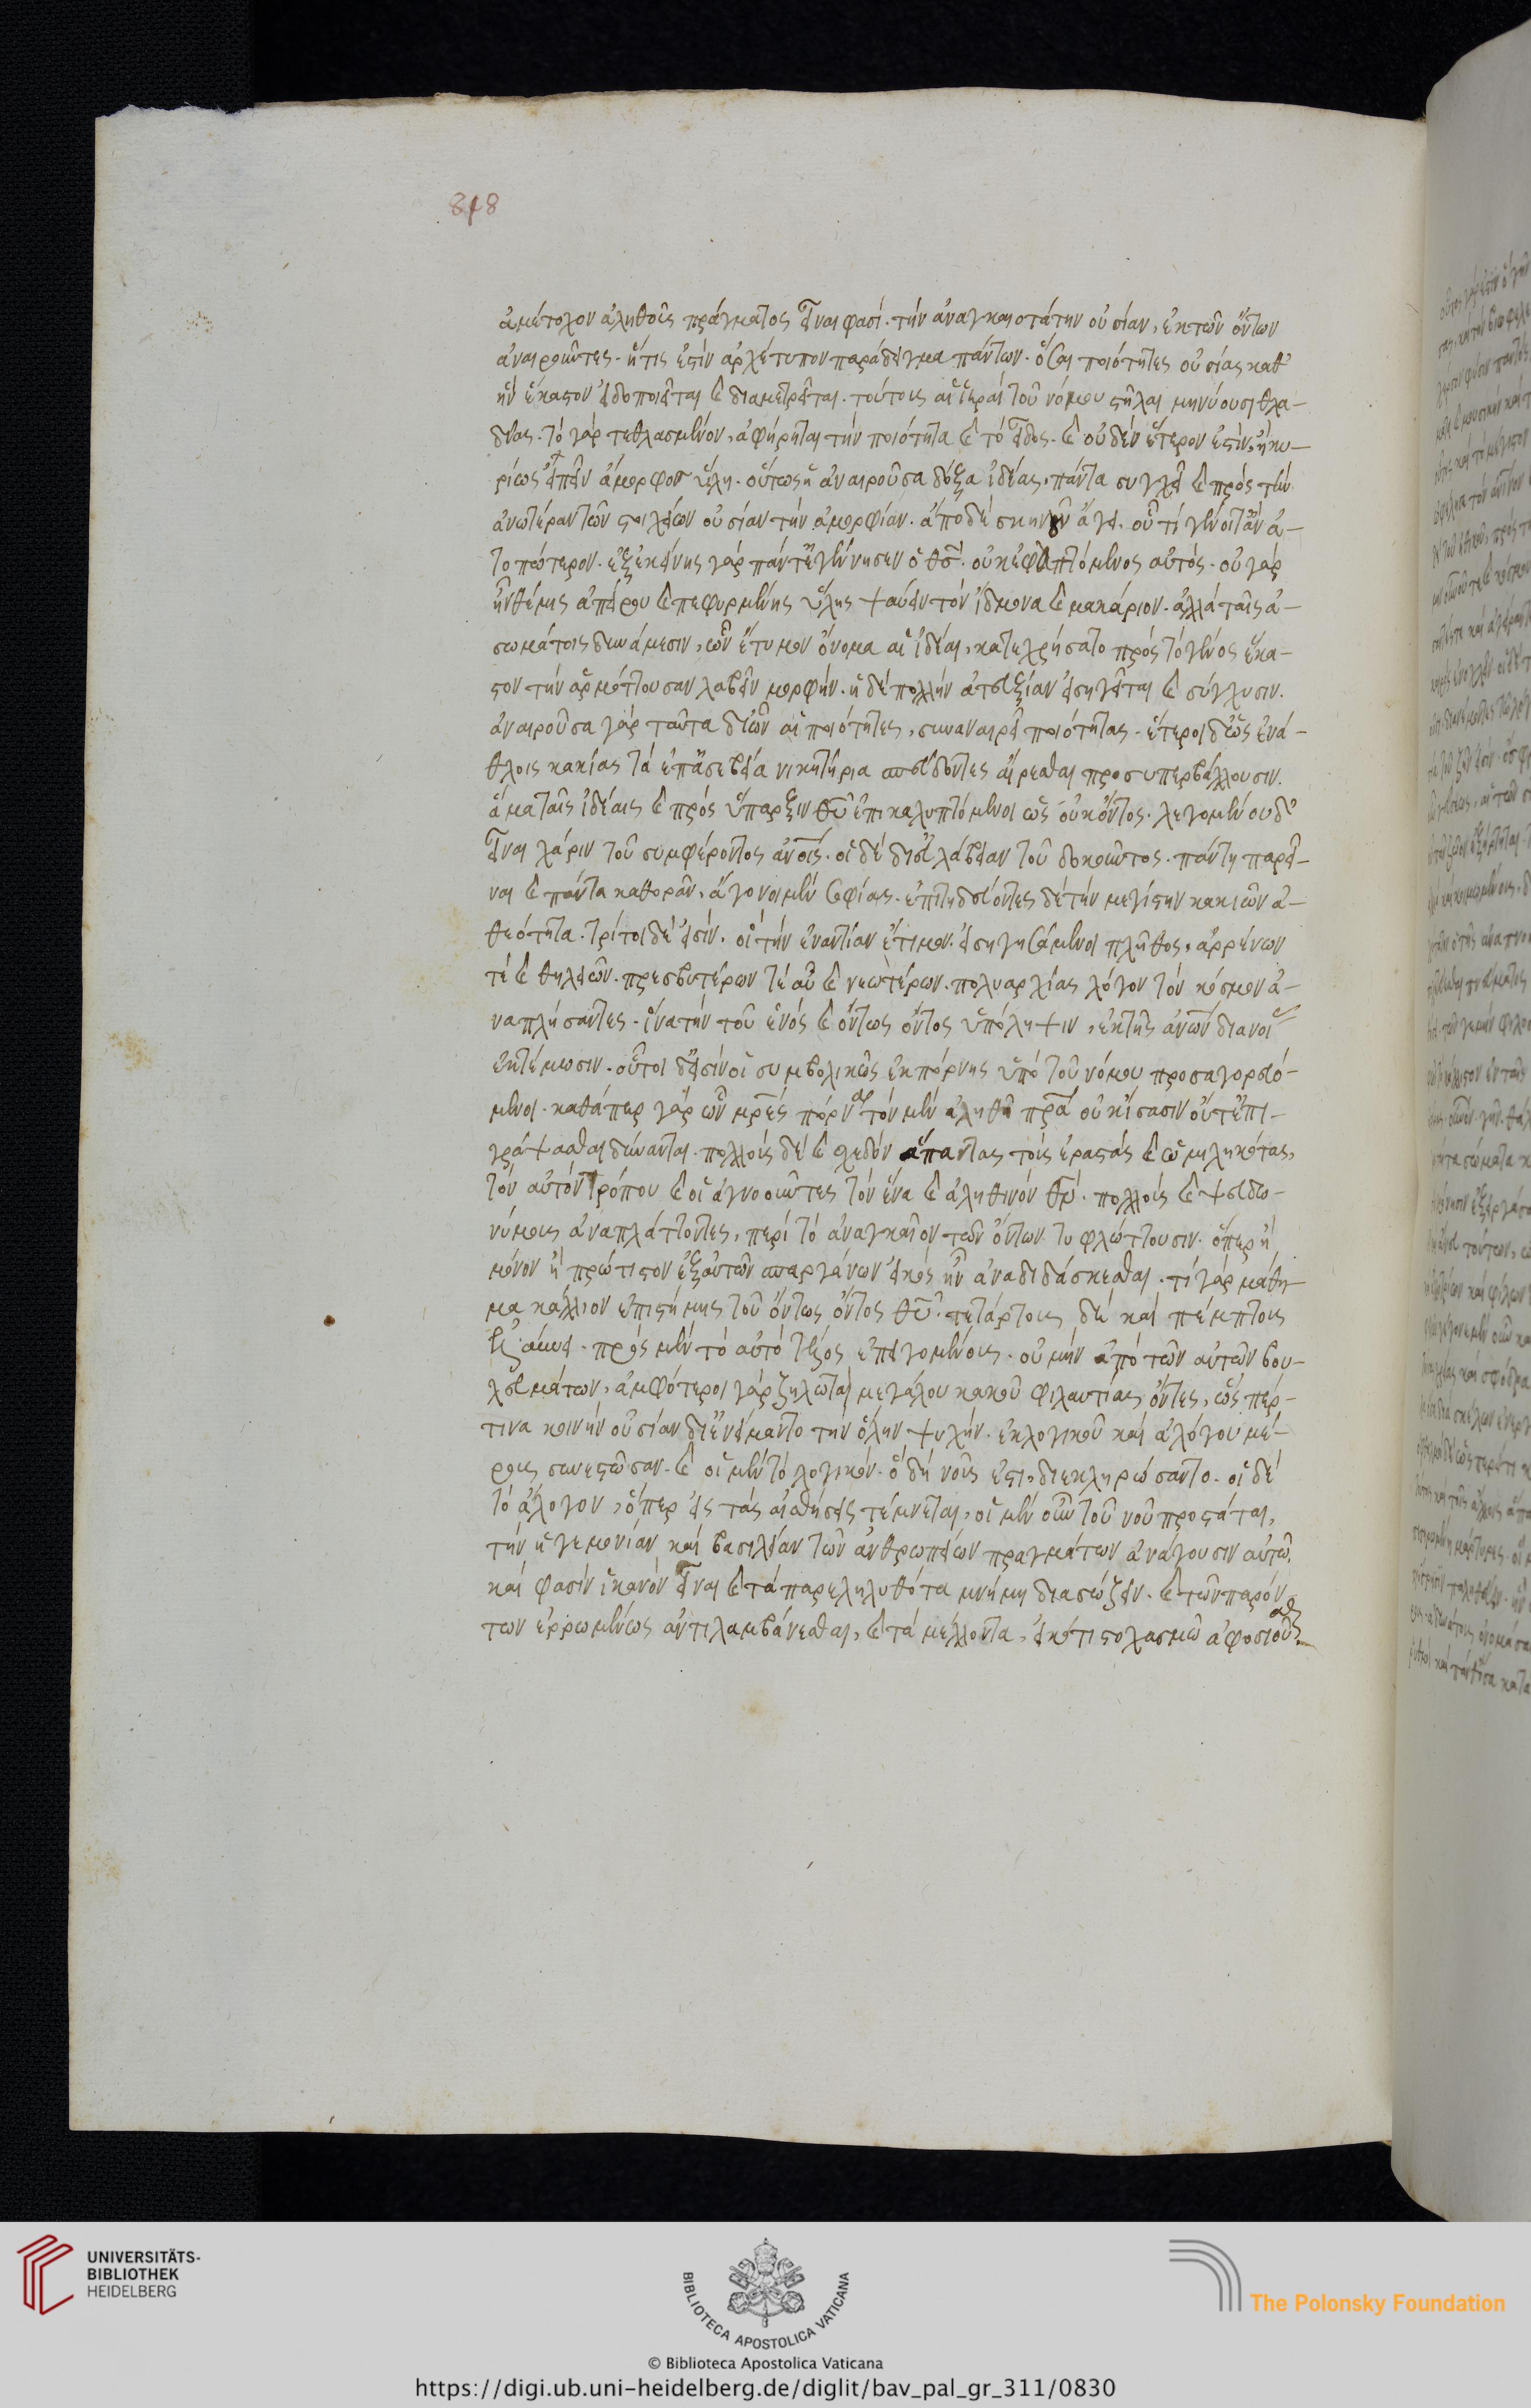 848
ἀμέτοχον ἀληθοῦς πράγματος εἶναι φασί. τὴν ἀναγκαιοτάτην οὐσίαν, ἐκ τῶν ὄντων
ἀναιροῦντες. ἥτις ἐστὶν ἀρχέτυπον παράδειγμα πάντων. ὅσαι ποιότητες οὐσίας καθ'
ἣν ἕκαστον εἰδοποιεῖται καὶ διαμετρεῖται. τούτους αἱ ἱεραὶ τοῦ νόμου στῆλαι μηνύουσι θλα-
δίας. τὸ γὰρ τεθλασμένον, ἀφήρηται τὴν ποιότητα καὶ τὸ εἶδος. καὶ οὐδὲν ἕτερον ἐστὶν, ἢ κυ-
ρίως εἰπεῖν ἄμορφος ὕλη. οὕτως ἡ ἀναιροῦσα δόξα ἰδέας, πάντα συγχεῖ καὶ πρὸς τὴν
ἀνωτέραν τῶν στοιχείων οὐσίαν τὴν ἀμορφίαν. ἄγει. οὗ τί γένοιτ' ἂν ἀ-
τοπώτερον. ἐξ ἐκείνης γὰρ πάντ' ἐγέννησεν ὁ θς. οὐκ ἐφαπτόμενος αὐτός. οὐ γὰρ
ἦν θέμις ἀπείρου καὶ πεφυρμένης ὕλης ψαύειν τὸν ἴδμονα καὶ μακάριον. ἀλλὰ ταῖς ἀ-
σωμάτοις δυνάμεσιν, ὧν ἔτυμον ὄνομα αἱ ἰδέαι, κατεχρήσατο πρὸς τὸ γένος ἕκα-
στον τὴν ἁρμόττουσαν λαβεῖν μορφήν. ἡ δὲ πολλὴν ἀταξίαν εἰσηγεῖται καὶ σύγχυσιν.
ἀναιροῦσα γὰρ ταῦτα δι' ὧν αἱ ποιότητες, συναναιρεῖ ποιότητας. ἕτεροι δ' ὡς ἐν ἄ-
θλοις κακίας τὰ ἐπ' ἀσεβείᾳ νικητήρια σπεύδοντες αἴρεσθαι προσυπερβάλλουσιν.
ἅμα ταῖς ἰδέαις καὶ πρὸς ὕπαρξιν θυ ἐπικαλυπτόμενοι ὡς οὐκ ὄντος. λεγομένου δ'
εἶναι χάριν τοῦ συμφέροντος ανοις. οἱ δὲ δι' εὐλάβειαν τοῦ δοκοῦντος. πάντη παρεῖ-
ναι καὶ πάντα καθορᾶν, ἄγονοι μὲν σοφίας. ἐπιτηδεύοντες δὲ τὴν μεγίστην κακιῶν ἀ-
θεότητα. τρίτοι δὲ εἰσὶν. οἱ τὴν ἐναντίαν ἔτιμον. εἰσηγησάμενοι πλῆθος, ἀρρένων
τὲ καὶ θηλειῶν. πρεσβυτέρων τὲ αὖ καὶ νεωτέρων. πολυαρχίας λόγον τὸν κόσμον ἀ-
ναπλήσαντες. ἵνα τὴν τοῦ ἑνὸς καὶ ὄντως ὄντος ὑπόληψιν, ἐκ τῆς ανων διανοί
ἐκτέμωσιν. οὗτοι δ' εἰσὶν οἱ συμβολικῶς ἐκ πόρνης ὑπὸ τοῦ νόμου προσαγορευό-
μενοι. καθάπερ γὰρ ὧν μρες πόρναι τὸν μὲν ἀληθῆ πρα οὐκ ἴσασιν οὔτ' ἐπι-
γράψασθαι δύνανται. πολλοὺς δὲ καὶ σχεδὸν ἅπαντας τοὺς ἐραστὰς καὶ ὡμιληκότας,
τὸν αὐτὸν τρόπον καὶ οἱ ἀγνοοῦντες τὸν ἕνα καὶ ἀληθινὸν θν. πολλοὺς καὶ ψευδω-
νύμους ἀναπλάττοντες, περὶ τὸ ἀναγκαῖον τῶν ὄντων τυφλώττουσιν. ὅπερ ἢ
μόνον ἢ πρώτιστον ἐξ αὐτῶν σπαργάνων εἰκὸς ἦν ἀναδιδάσκεσθαι. τί γὰρ μάθη-
μα κάλλιον ἐπιστήμης τοῦ ὄντως ὄντος θυ. τετάρτους δὲ καὶ πέμπτους
ἐξάγει. πρὸς μὲν τὸ αὐτὸ τέλος ἐπειγομένους. οὐ μὴν ἀπὸ τῶν αὐτῶν βου-
λευμάτων, ἀμφότεροι γὰρ ζηλωταὶ μεγάλου κακοῦ φιλαυτίας ὄντες, ὥσπερ-
τινα κοινὴν οὐσίαν διενείμαντο τὴν ὅλην ψυχήν. ἐκ λογικοῦ καὶ ἀλόγου μέ-
ρους συνεστῶσαν. καὶ οἱ μὲν τὸ λογικόν. ὃ δὴ νοῦς ἐστι, διεκληρώσαντο. οἱ δὲ
τὸ ἄλογον, ὅπερ εἰς τὰς αἰσθήσεις τέμνεται, οἱ μὲν οὖν τοῦ νοῦ προστάται,
τὴν ἡγεμονίαν καὶ βασιλείαν τῶν ἀνθρωπείων πραγμάτων ἀνάγουσιν αὐτῷ.
καὶ φασὶν ἱκανὸν εἶναι καὶ τὰ παρεληλυθότα μνήμῃ διασώζειν. καὶ τῶν παρόν-
των ἐρρωμένως ἀντιλαμβάνεσθαι, καὶ τὰ μέλλοντα, εἰκότι στοχασμῷ
UNIVERSITÄTS-
BIBLIOTHEK
HEIDELBERG
BIBLIOTECA APOSTOLICA VATICANA
The Polonsky Foundation
© Biblioteca Apostolica Vaticana
https://digi.ub.uni-heidelberg.de/diglit/bav_pal_gr_311/0830